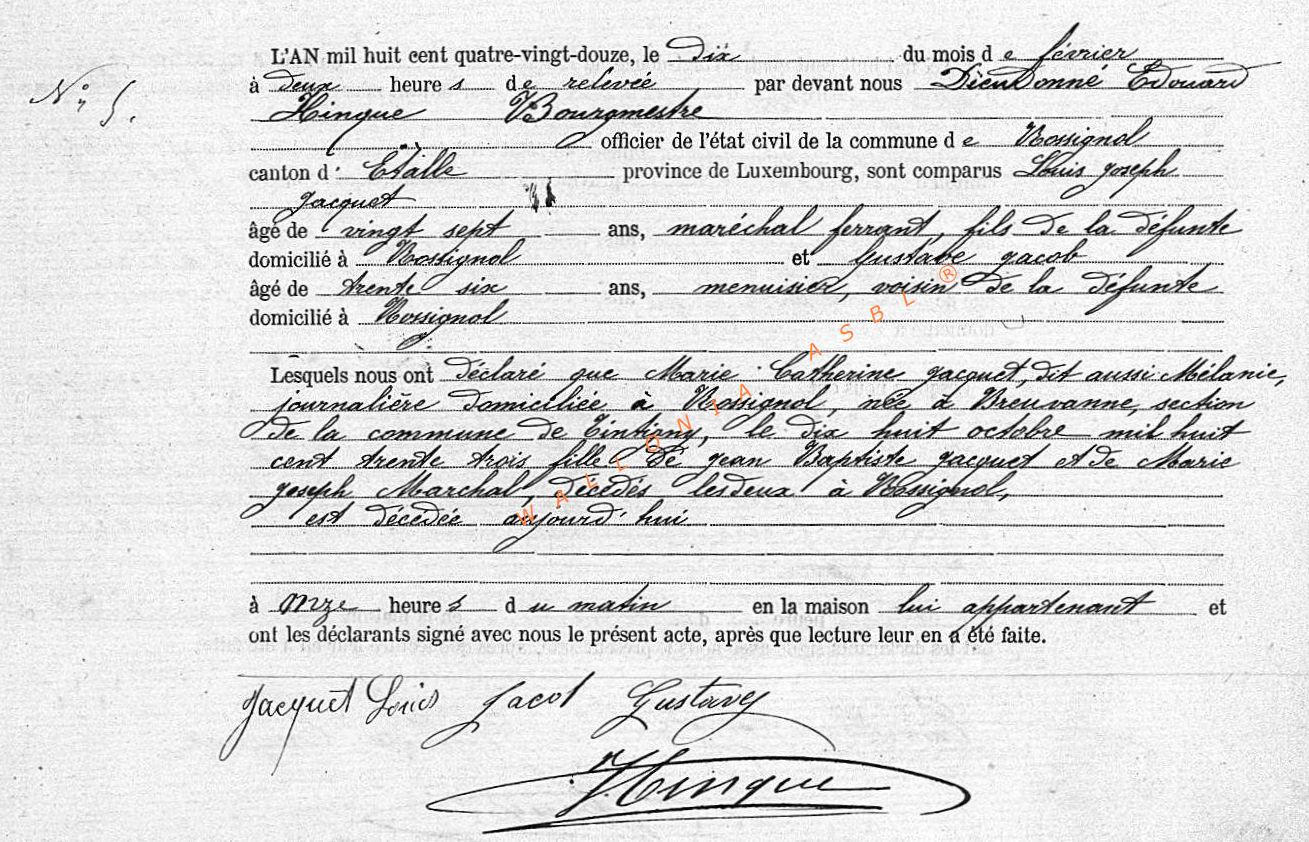 L'AN mil huit cent quatre-vingt-douze, le dix du mois de février
N° 5.
à deux heures de relevée par devant nous Dieudonné Edouard
Hinque Bourgmestre
officier de l'état civil de la commune de Rossignol
canton d'Etalle province de Luxembourg, sont comparus Louis joseph
jacquet
âgé de vingt sept ans, maréchal ferrant, fils de la défunte
domicilié à Rossignol et Gustave jacob
âgé de trente six ans, menuisier, voisin de la défunte
domicilié à Rossignol
Lesquels nous ont déclaré que Marie Catherine jacquet, dit aussi Mélanie,
journalière domiciliée à Rossignol, née à Breuvanne, section
de la commune de Tintigny, le dix huit octobre mil huit
cent trente trois fille de jean Baptiste jacquet et de Marie
joseph Marchal, décédés les deux à Rossignol,
est décédée aujourd'hui
à onze heures du matin en la maison lui appartenant et
ont les déclarants signé avec nous le présent acte, après que lecture leur en a été faite.
Jacquet Louis Jacob Gustave
Hinque
WALLONIA ASBL ®